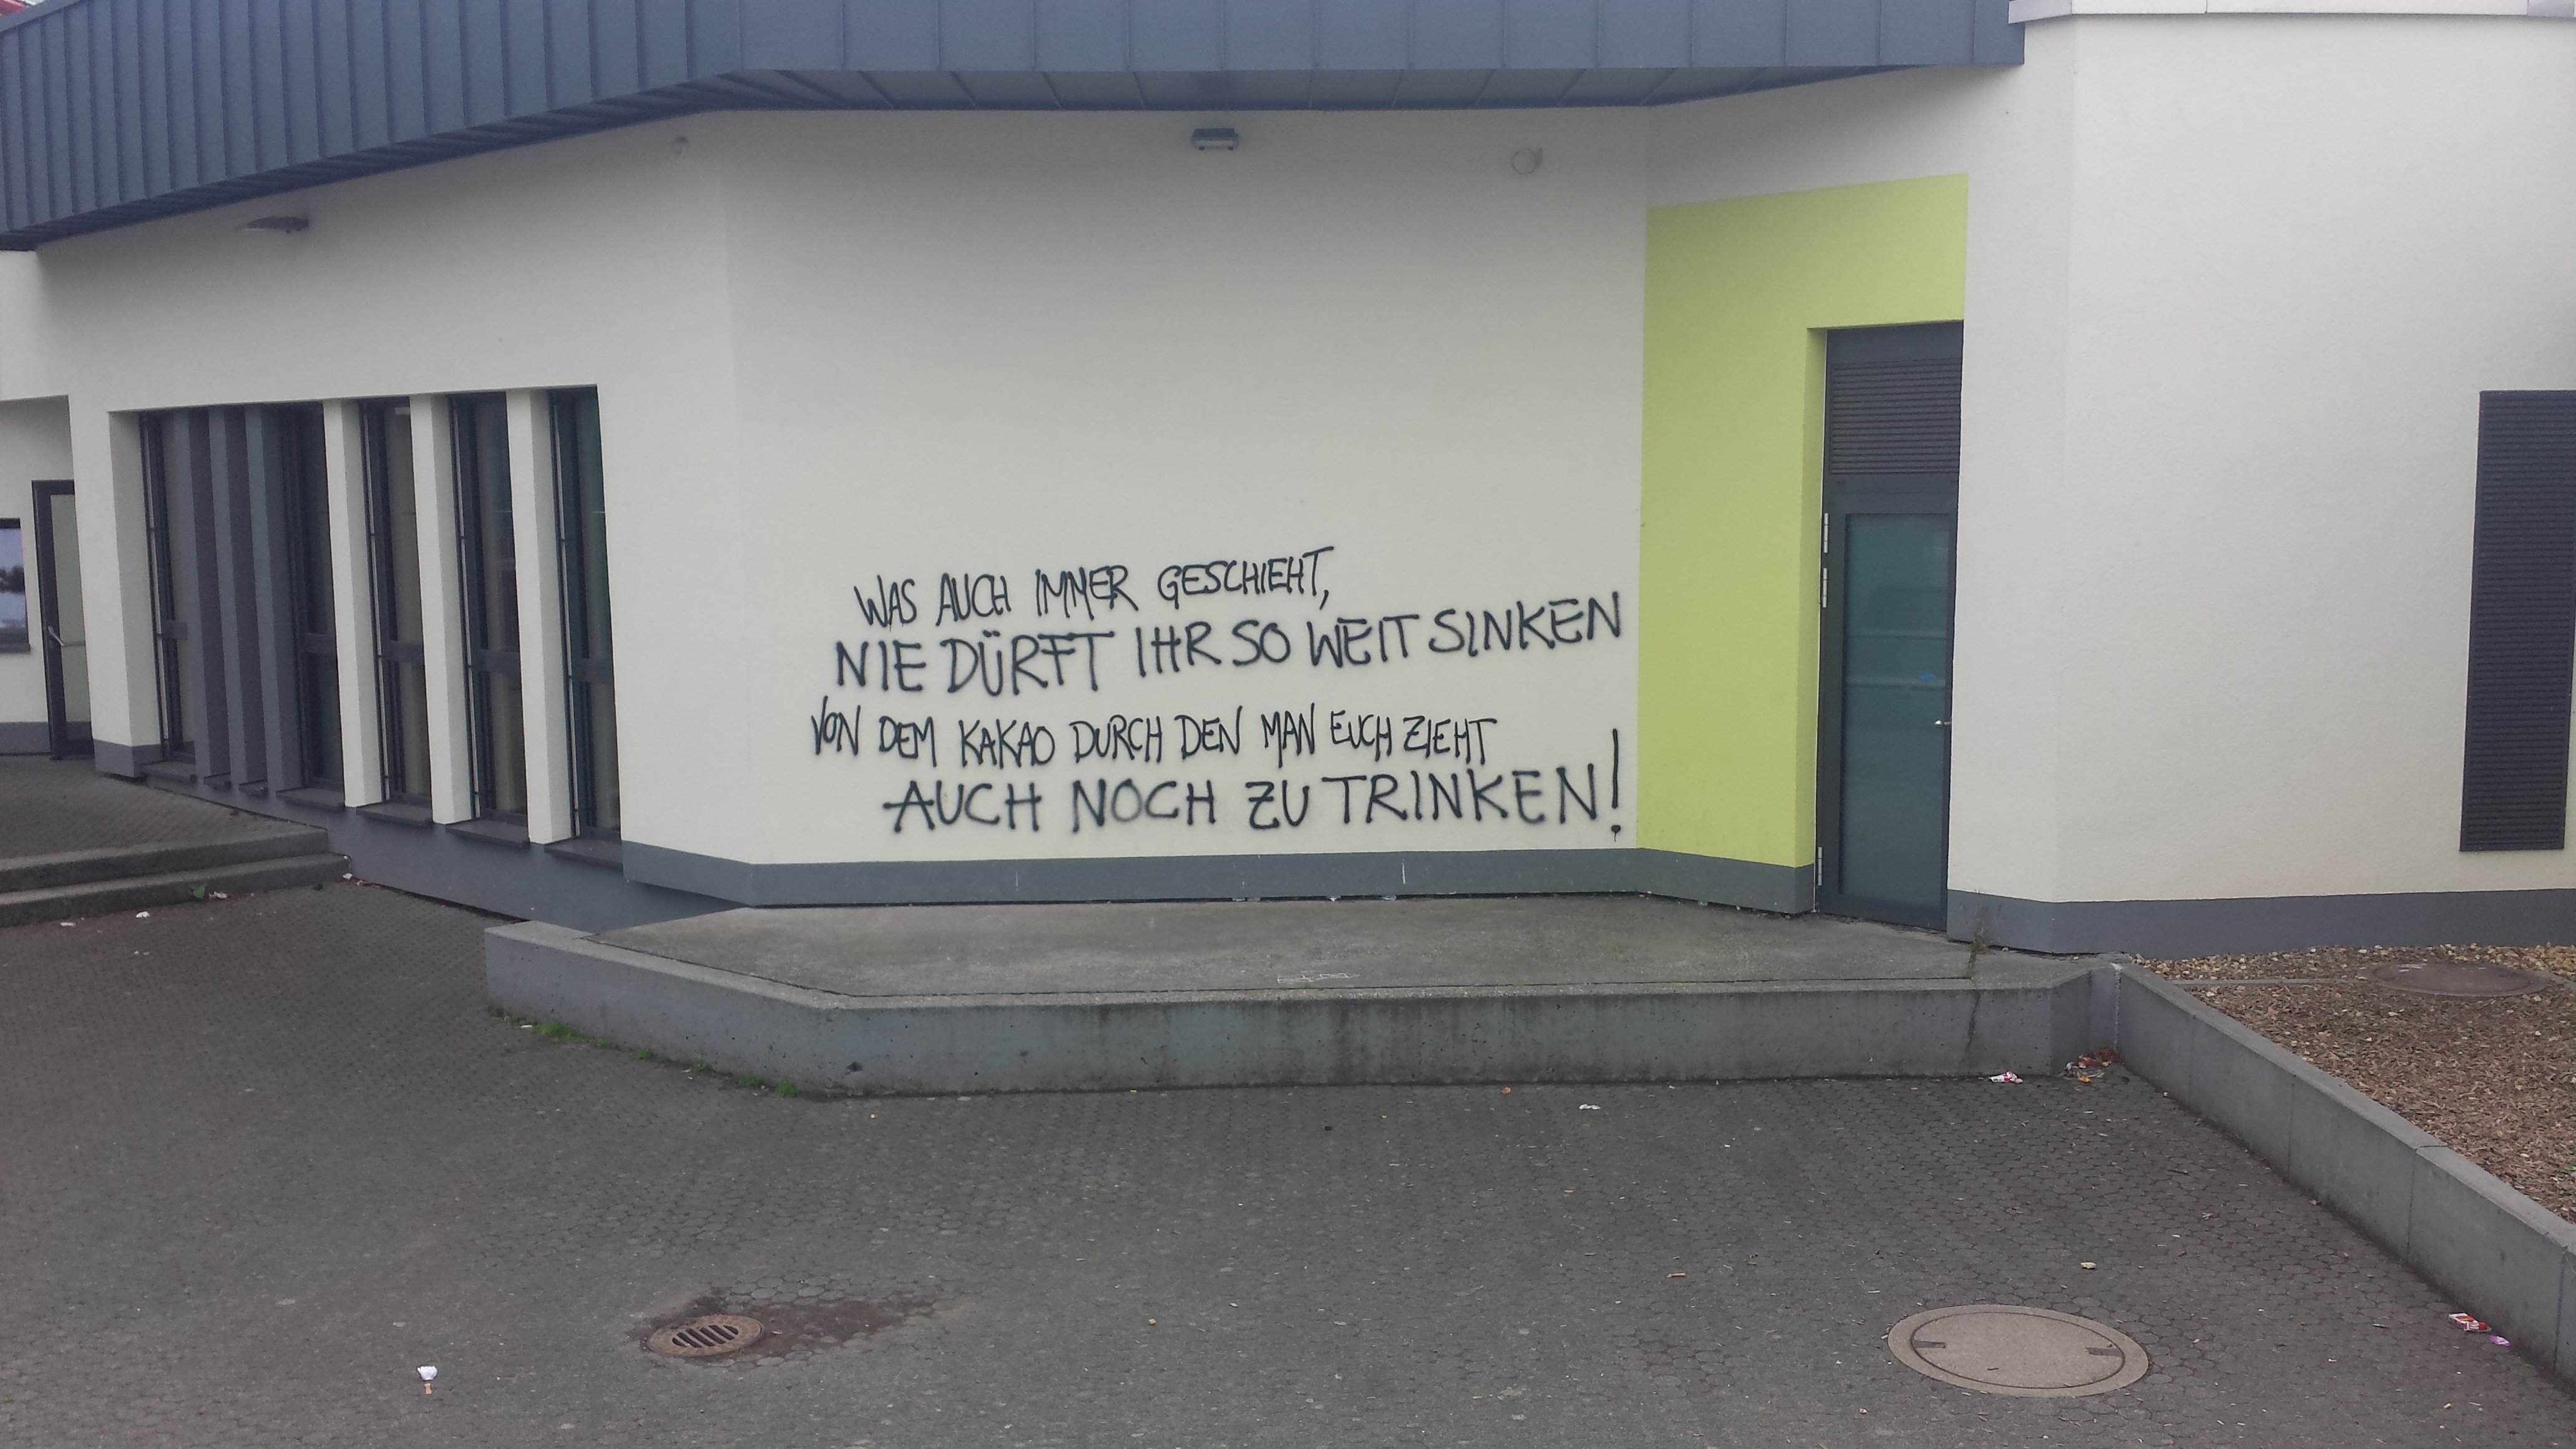 WAS AUCH IMMER GESCHIEHT,
NIE DÜRFT IHR SO WEIT SINKEN
VON DEM KAKAO DURCH DEN MAN EUCH ZIEHT
AUCH NOCH ZU TRINKEN!